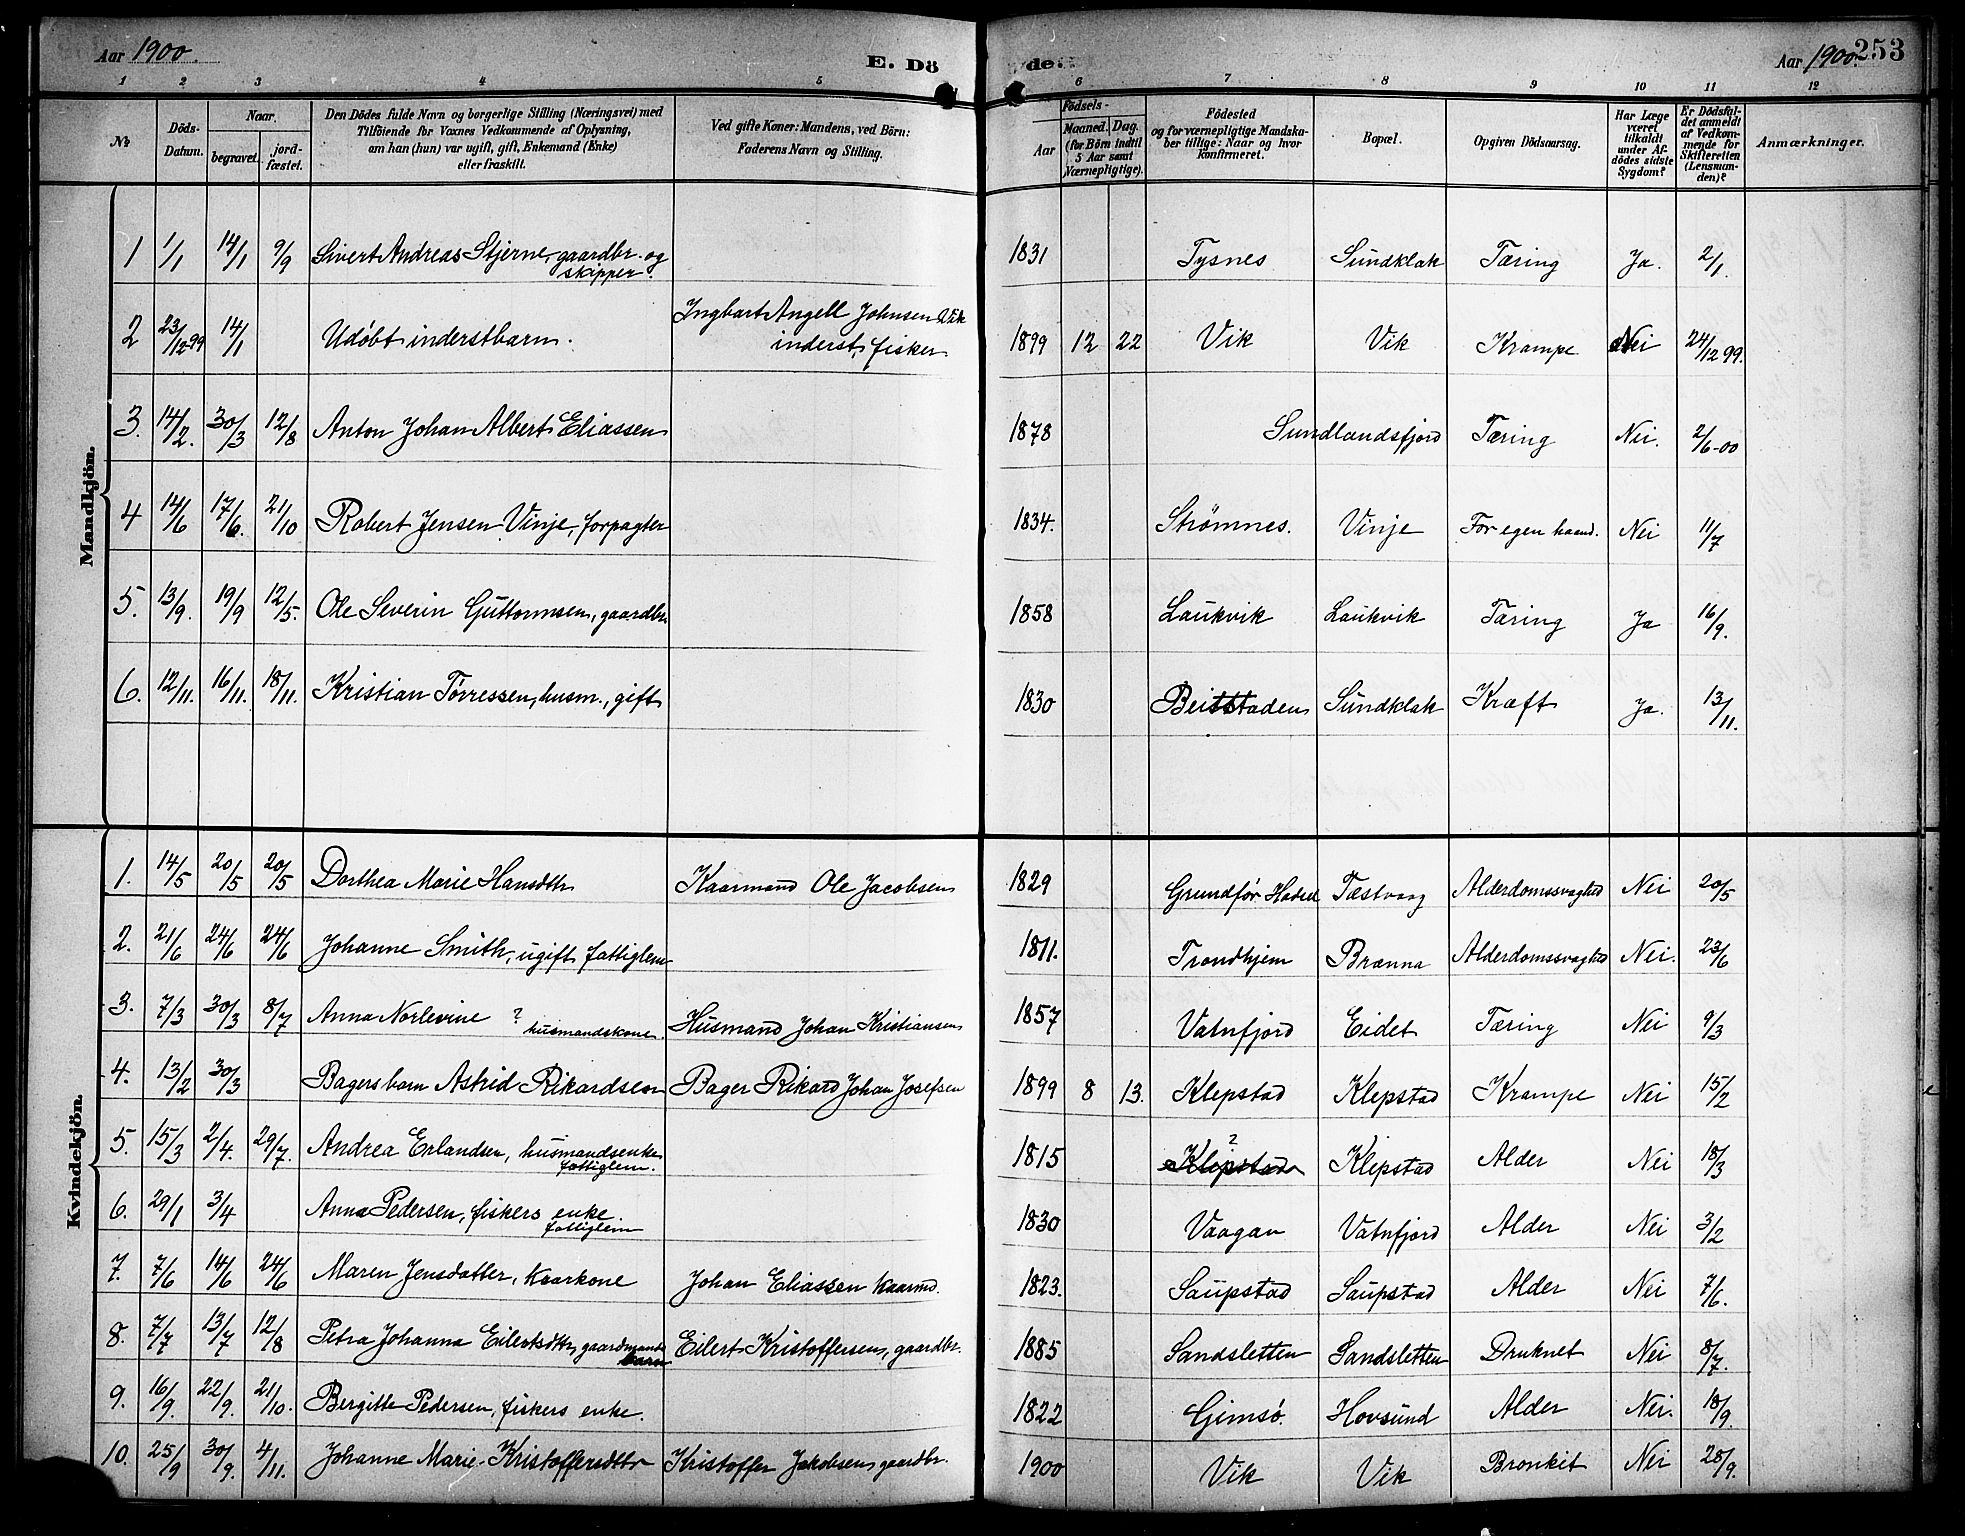 Aar 1900. E. Dö de. Aar 1900. 253
1 2 3 4 5 6 7 8 9 10 11 12
№
Döds-Datum.
Naar
begravet.
jord-fæstet.
Den Dödes fulde Navn og borgerlige Stilling (Næringsvei) med
Tilföiende for Voxnes Vedkommende af Oplysning,
om han (hun) var ugift, gift, Enkemand (Enke)
eller fraskilt.
Ved gifte Koner: Mandens, ved Börn:
Faderens Navn og Stilling.
Födsels-
Aar
Maaned. Dag.
(for Börn indtil
5 Aar samt
Værnepligtige).
Födested
og for værnepligtige Mandska-
ber tillige: Naar og hvor
konfirmeret.
Bopæl.
Opgiven Dödsaarsag.
Har Læge
været
tilkaldt
under Af-
dödes sidste
Sygdom?
Er Dödsfal-
det anmeldt
af Vedkom-
mende for
Skifteretten
(Lensman-
den)?
Anmærkninger.
Mandkjön.
1 1/1 14/1 9/9 Sivert Andreas Stjerne, gaardbr. og skipper. 1831 Tysnes Sundklak Tæring Ja. 2/1.
2 23/12 99 14/1 Udøbt inderstbarn. Ingbart Angell Johnsen Vik inderst, fisker 1899 12 22 Vik Vik Krampe Nei 24/12 99.
3. 14/2. 30/3 12/8 Anton Johan Albert Eliassen 1878 Sundlandsfjord Tæring Nei. 2/6-00
4 14/6 17/6. 21/10 Robert Jensen Vinje, forpagter 1834. Strømnes. Vinje For egen haand. Nei 11/7
5. 13/9. 19/9 12/5. Ole Severin Guttormsen, gaardbr. 1858 Laukvik Laukvik Tæring Ja 16/9.
6. 12/11. 16/11. 18/11. Kristian Tørressen, husm., gift 1830 Beitstaden Sundklak Kræft Ja. 13/11.
Kvindekjön.
1. 14/5 20/5 20/5 Dorthea Marie Hansdtr Kaarmand Ole Jacobsen 1829 Grundfør Hadsel Tæstvaag Alderdomssvaghed Nei 20/5
2. 21/6 24/6 24/6 Johanne Smith, ugift fattiglem 1811. Trondhjem Brænna Alderdomssvaghed Nei. 23/6
3. 7/3 30/3 8/7 Anna Norlevine ? husmandskone. Husmand Johan Kristiansen 1857 Vatnfjord Eidet Tæring Nei 9/3
4. 13/2 30/3 Bagersbarn Astrid Rikardsen Bager Rikard Johan Josefsen 1899 8 13. Klepstad Klepstad Krampe Nei 15/2
5. 15/3 2/4. 29/7. Andrea Erlandsen, husmandsenke fattiglem. 1815 Klepstad ? Klepstad Alder Nei 18/3
6. 29/1 3/4 Anna Pedersen, fiskers enke. fattiglem 1830 Vaagan Vatnfjord Alder Nei 3/2
7. 7/6 14/6 24/6 Maren Jensdatter, kaarkone Johan Eliassen kaarmd. 1823. Saupstad Saupstad Alder Nei 7/6.
8. 7/7 13/7 12/8 Petra Johanna Eilertsdtr, gaardmands barn Eilert Kristoffersen, gaardbr. 1885 Sandsletten Sandsletten Druknet Nei 8/7.
9. 16/9. 22/9. 21/10. Bergitte Pedersen, fiskers enke. 1822 Gimsø. Hovsund Alder Nei. 18/9.
10. 25/9 30/9. 4/11. Johanne Marie Kristoffersdtr Kristoffer Jakobsen gaardbr. 1900 Vik Vik Bronkit Nei 28/9.